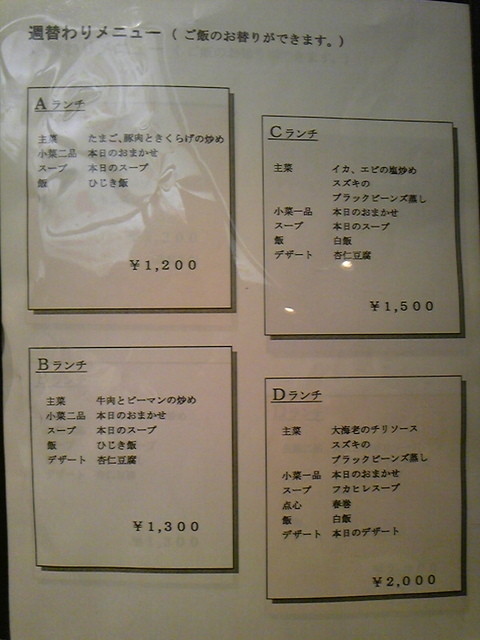 週替わりメニュー ( ご飯のお替りができます。)
Aランチ
主菜 たまご、豚肉ときくらげの炒め
小菜二品 本日のおまかせ
スープ 本日のスープ
飯 ひじき飯
¥1,200
Bランチ
主菜 牛肉とピーマンの炒め
小菜二品 本日のおまかせ
スープ 本日のスープ
飯 ひじき飯
デザート 杏仁豆腐
¥1,300
Cランチ
主菜 イカ、エビの塩炒め
スズキの
ブラックビーンズ蒸し
小菜一品 本日のおまかせ
スープ 本日のスープ
飯 白飯
デザート 杏仁豆腐
¥1,500
Dランチ
主菜 大海老のチリソース
スズキの
ブラックビーンズ蒸し
小菜一品 本日のおまかせ
スープ フカヒレスープ
点心 春巻
飯 白飯
デザート 本日のデザート
¥2,000